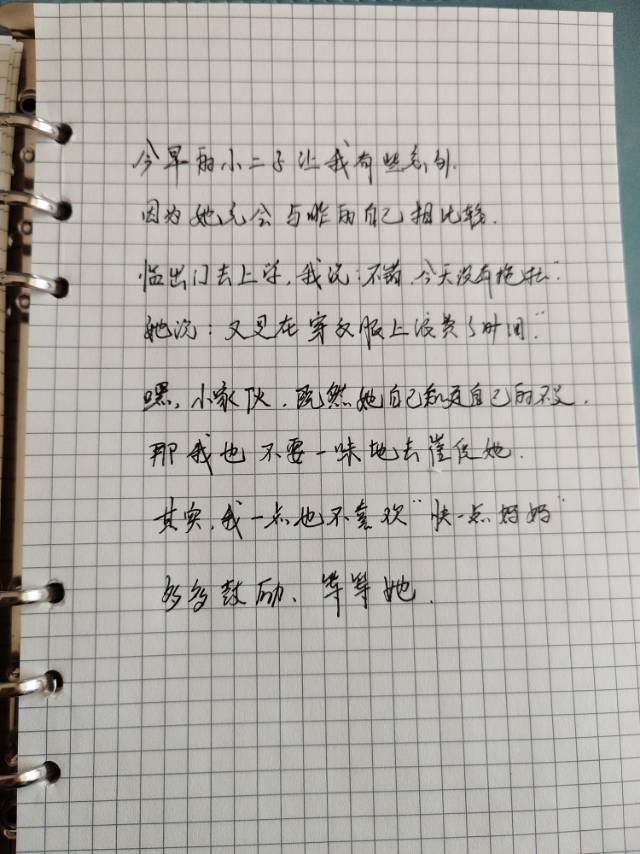 今早的小二子让我有些意外.
因为她竟会与昨的自己相比较.
临出门去上学,我说:不错,今天没有拖拉"
她说:又是在穿衣服上浪费了时间."
嘿,小家伙,既然她自己知道自己的不足.
那我也不要一味地去催促她.
其实,我一点也不喜欢"快一点妈妈"
多多鼓励、等等她.